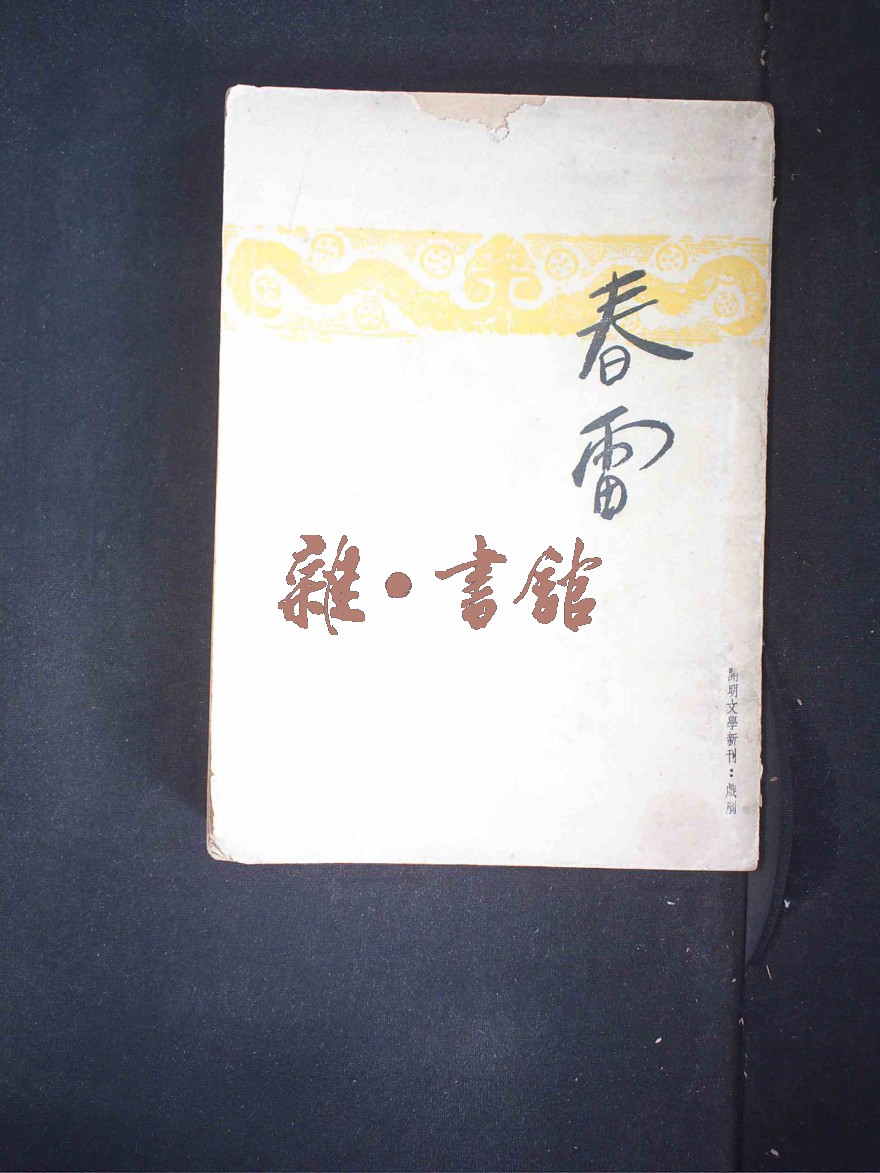 春雷
雜•書館
開明文學新刊：戲劇